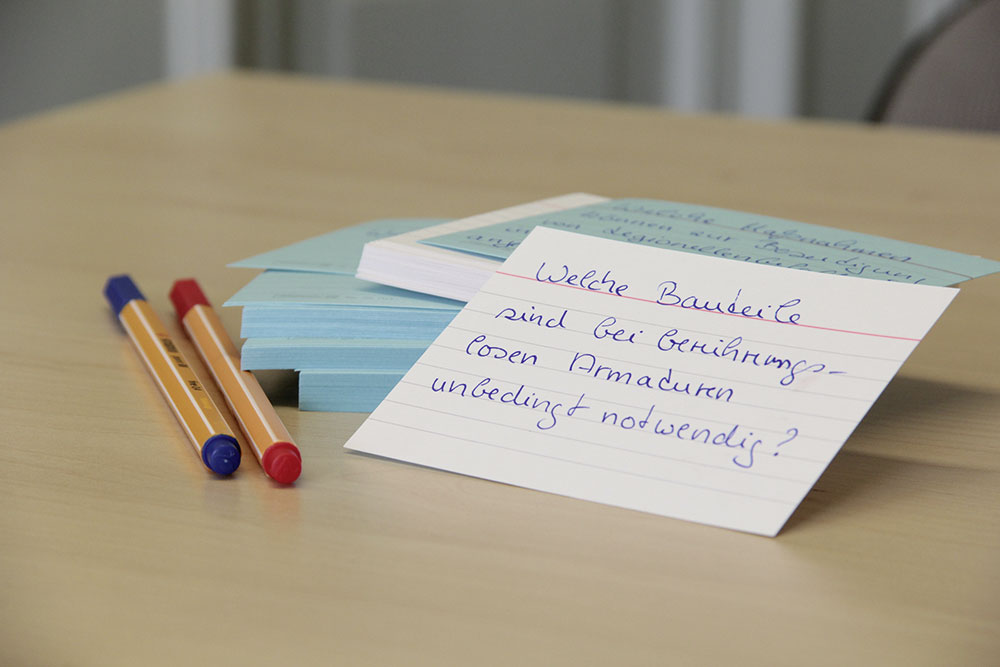 Welche Bauteile
sind bei berührungs-
losen Armaturen
unbedingt notwendig?
Welche Maßnahmen
können zur Beseitigung
von Legionellen